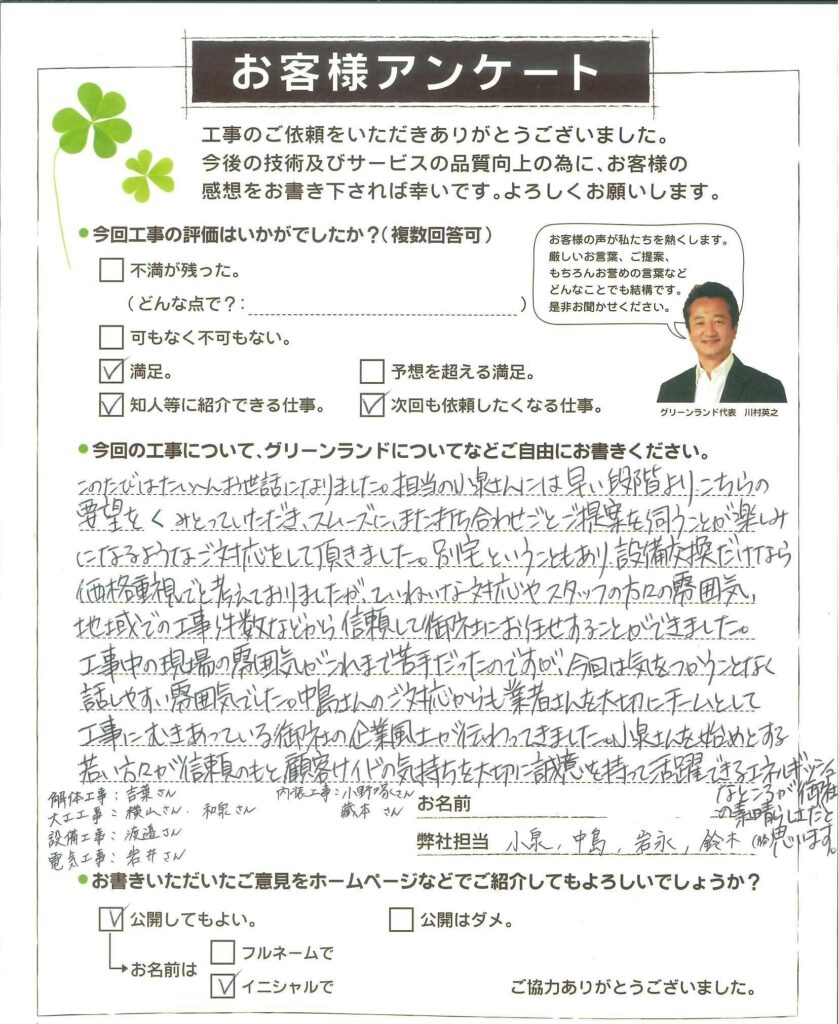 お客様アンケート
工事のご依頼をいただきありがとうございました。
今後の技術及びサービスの品質向上の為に、お客様の
感想をお書き下されば幸いです。よろしくお願いします。
●今回工事の評価はいかがでしたか?(複数回答可)
不満が残った。
(どんな点で?: )
可もなく不可もない。
満足。
予想を超える満足。
知人等に紹介できる仕事。
次回も依頼したくなる仕事。
お客様の声が私たちを熱くします。
厳しいお言葉、ご提案、
もちろんお誉めの言葉など
どんなことでも結構です。
是非お聞かせください。
グリーンランド代表 川村英之
●今回の工事について、グリーンランドについてなどご自由にお書きください。
このたびはたいへんお世話になりました。担当の小泉さんには早い段階よりこちらの
要望をくみとっていただき、スムーズに、また打ち合わせごとご提案を伺うことが楽しみ
になるようなご対応をして頂きました。別宅ということもあり、設備交換だけなら
価格重視でと考えておりましたが、ていねいな対応やスタッフの方々の雰囲気、
地域での工事件数などから信頼して御社にお任せすることができました。
工事中の現場の雰囲気がこれまで苦手だったのですが、今回は気をつかうことなく
話しやすい雰囲気でした。中島さんのご対応からも業者さんを大切にチームとして
工事にむきあっている御社の企業風土が伝わってきました。小泉さんを始めとする
若い方々が信頼のもと顧客サイドの気持ちを大切に誠意を持って活躍できるエネルギッシュ
なところが御社
の素晴らしさだと
思います。
解体工事:吉葉さん
大工工事:横山さん、和泉さん
設備工事:渡邉さん
電気工事:岩井さん
内装工事:小野塚さん
蔵本さん
お名前
弊社担当 小泉, 中島, 岩永, 鈴木
●お書きいただいたご意見をホームページなどでご紹介してもよろしいでしょうか?
公開してもよい。
公開はダメ。
お名前は
フルネームで
イニシャルで
ご協力ありがとうございました。